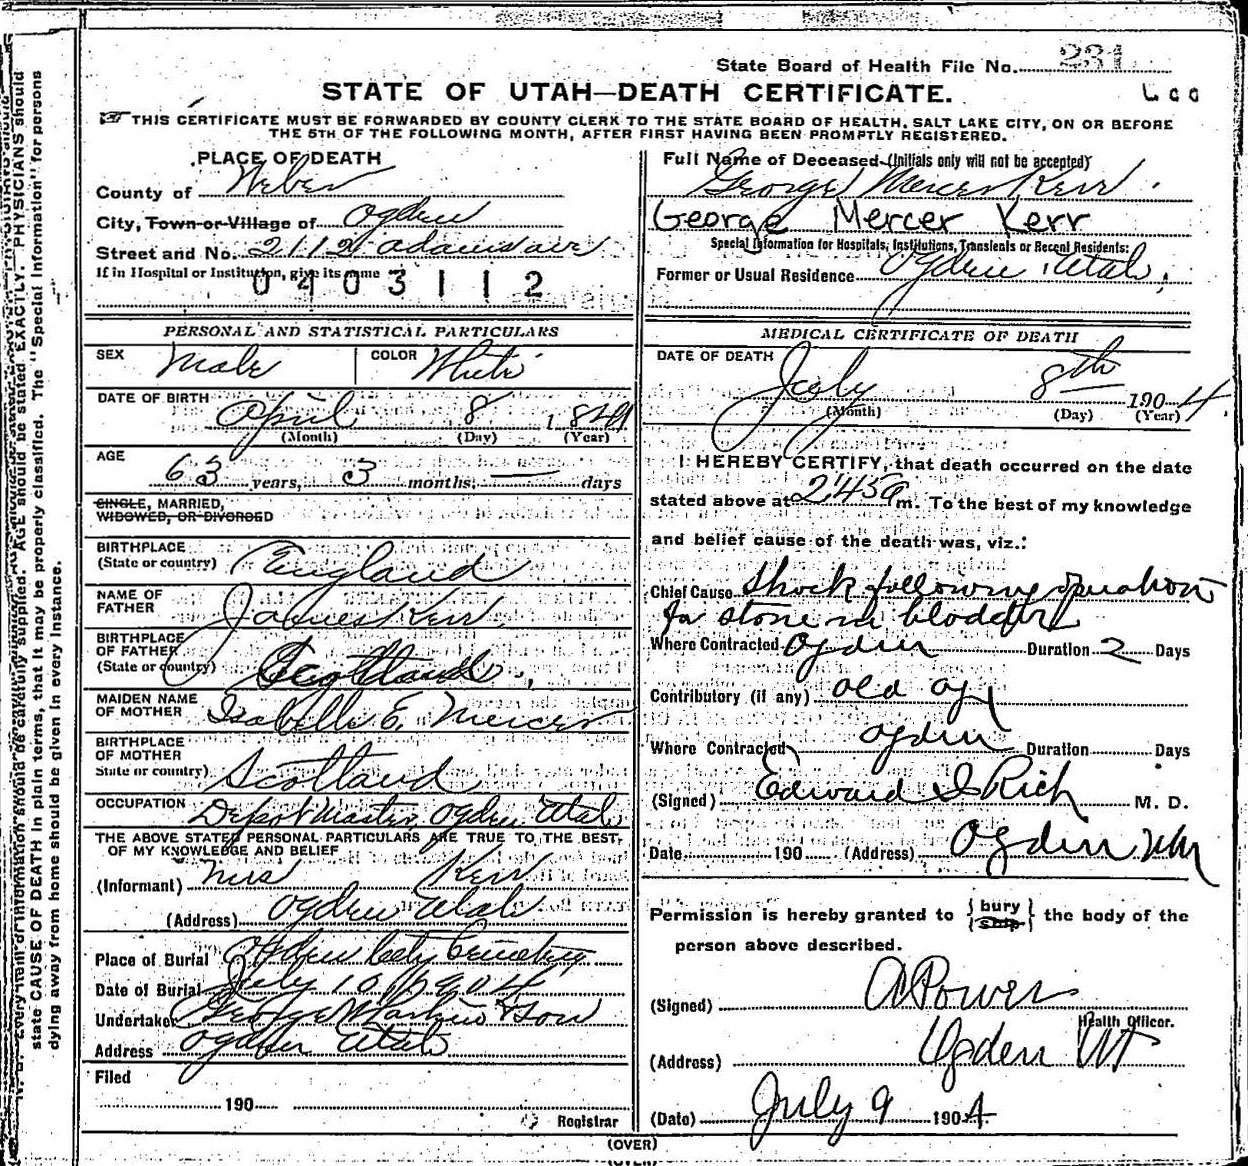 State Board of Health File No. 231
STATE OF UTAH—DEATH CERTIFICATE.
THIS CERTIFICATE MUST BE FORWARDED BY COUNTY CLERK TO THE STATE BOARD OF HEALTH, SALT LAKE CITY, ON OR BEFORE
THE 5TH OF THE FOLLOWING MONTH, AFTER FIRST HAVING BEEN PROMPTLY REGISTERED.
PLACE OF DEATH
County of Weber
City, Town or Village of Ogden
Street and No. 2112 Adams ave
If in Hospital or Institution, give its name
0403112
Full Name of Deceased (Initials only will not be accepted)
George Mercer Kerr
George Mercer Kerr
Special Information for Hospitals, Institutions, Transients or Recent Residents:
Former or Usual Residence Ogden Utah
PERSONAL AND STATISTICAL PARTICULARS
SEX Male COLOR White
DATE OF BIRTH April 8 1841
(Month) (Day) (Year)
AGE 63 years, 3 months, — days
SINGLE, MARRIED,
WIDOWED, OR DIVORCED
BIRTHPLACE
(State or country) England
NAME OF
FATHER James Kerr
BIRTHPLACE
OF FATHER
(State or country) Scotland
MAIDEN NAME
OF MOTHER Isabelle E. Mercer
BIRTHPLACE
OF MOTHER
State or country) Scotland
OCCUPATION Depot Master Ogden Utah
THE ABOVE STATED PERSONAL PARTICULARS ARE TRUE TO THE BEST
OF MY KNOWLEDGE AND BELIEF
(Informant) Mrs Kerr
(Address) Ogden Utah
Place of Burial Ogden City Cemetery
Date of Burial July 10, 1904
Undertaker George & Son
Address Ogden Utah
Filed
190
Registrar
MEDICAL CERTIFICATE OF DEATH
DATE OF DEATH July 8th 1904
(Month) (Day) (Year)
I HEREBY CERTIFY, that death occurred on the date
stated above at 2:45 a m. To the best of my knowledge
and belief cause of the death was, viz.:
Chief Cause Shock following operation
for stone in bladder
Where Contracted Ogden Duration 2 Days
Contributory (if any) old age
Where Contracted Ogden Duration Days
(Signed) Edward I Rich M. D.
Date 190 (Address) Ogden Utah
Permission is hereby granted to {bury
ship} the body of the
person above described.
(Signed) A Power
Health Officer.
(Address) Ogden UT
(Date) July 9 1904
(OVER)
(OVER)
N. B. Every item of information should be carefully supplied. AGE should be stated EXACTLY. PHYSICIANS should
state CAUSE OF DEATH in plain terms, that it may be properly classified. The "Special Information" for persons
dying away from home should be given in every instance.